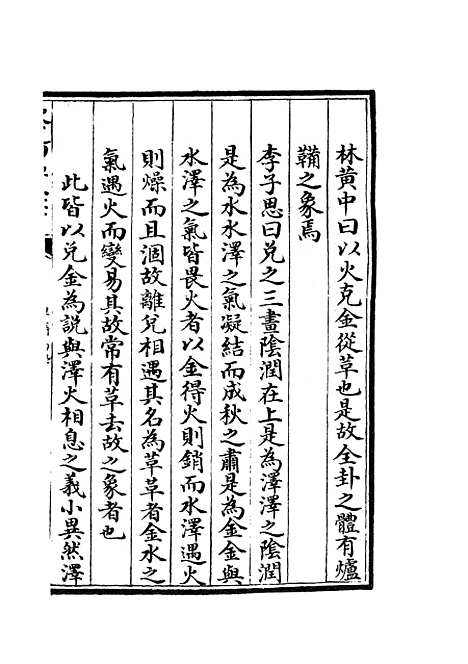 林黄中曰以火克金從革也是故全卦之體有爐
鞴之象焉
李子思曰兌之三畫隂潤在上是為澤澤之隂潤
是為水水澤之氣凝結而成秋之肅是為金金與
水澤之氣皆畏火者以金得火則銷而水澤遇火
則燥而且涸故離兌相遇其名為革革者金水之
氣遇火而變易其故常有革去故之象者也
此皆以兌金為說與澤火相息之義小異然澤